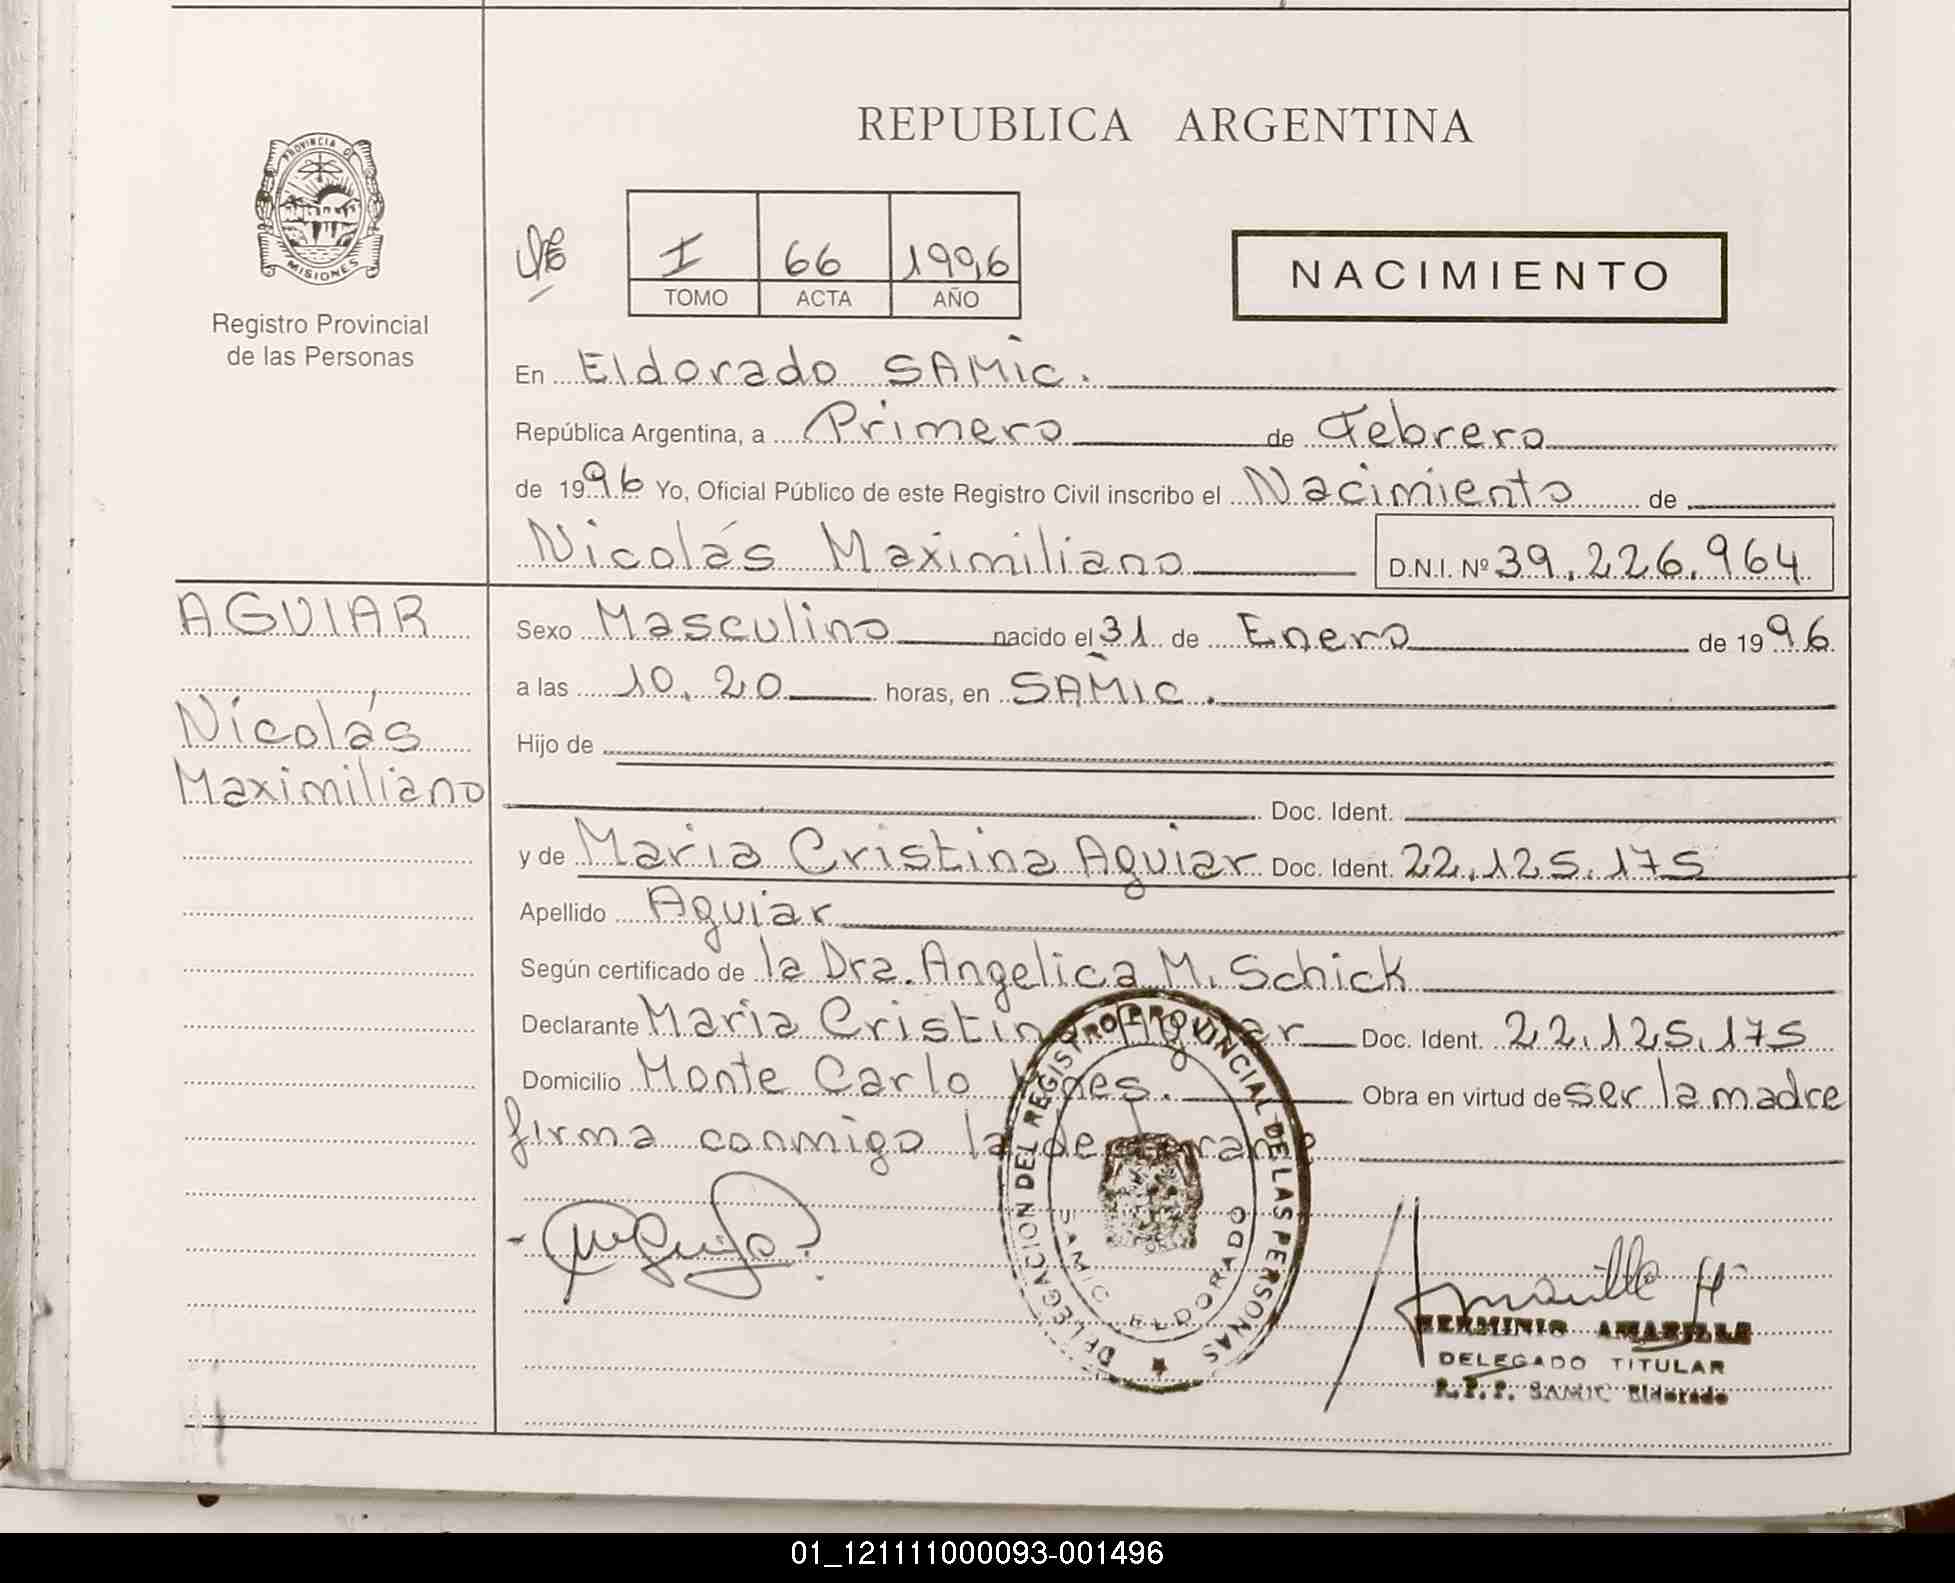 REPUBLICA ARGENTINA
PROVINCIA DE
MISIONES
Registro Provincial
de las Personas
I 66 1996
TOMO ACTA AÑO
NACIMIENTO
En Eldorado SAMic.
República Argentina, a Primero de Febrero
de 1996 Yo, Oficial Público de este Registro Civil inscribo el Nacimiento de
Nicolás Maximiliano D.N.I. Nº 39.226.964
AGUIAR
Nicolás
Maximiliano
Sexo Masculino nacido el 31 de Enero de 1996
a las 10.20 horas, en SAMIC.
Hijo de
Doc. Ident.
y de Maria Cristina Aguiar Doc. Ident. 22.125.175
Apellido Aguiar
Según certificado de la Dra. Angelica M. Schick
Declarante Maria Cristina Aguiar Doc. Ident. 22.125.175
Domicilio Monte Carlo Obra en virtud de ser la madre
firma conmigo la
DELEGACION DEL REGISTRO PROVINCIAL DE LAS PERSONAS
SAMIC ELDORADO
HERMINIO AMARILLA
DELEGADO TITULAR
R.P.P. SAMIC Eldorado
01_121111000093-001496